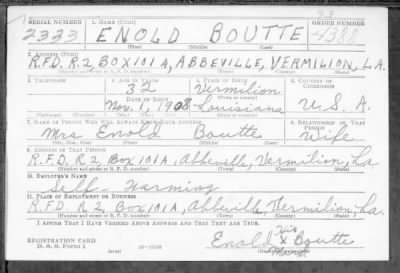 23
SERIAL NUMBER 1. NAME (Print) ORDER NUMBER
2333 ENOLD BOUTTE 4388
(First) (Middle) (Last)
2. ADDRESS (Print)
R.F.D. R.2 BOX 101A, ABBEVILLE, VERMILION, LA.
(Number and street or R. F. D. number) (Town) (County) (State)
3. TELEPHONE 4. AGE IN YEARS 5. PLACE OF BIRTH 6. COUNTRY OF CITIZENSHIP
32 Vermilion
DATE OF BIRTH
Nov. 1, 1908 Louisiana U. S. A.
7. NAME OF PERSON WHO WILL ALWAYS KNOW YOUR ADDRESS 8. RELATIONSHIP OF THAT PERSON
Mrs Enold Boutte Wife
(Mr., Mrs., Miss) (First) (Middle) (Last)
9. ADDRESS OF THAT PERSON
R.F.D. R.2, Box 101A, Abbeville, Vermilion, La
(Number and street or R. F. D. number) (Town) (County) (State)
10. EMPLOYER'S NAME
Self - Farming
11. PLACE OF EMPLOYMENT OR BUSINESS
R.F.D. R.2, Box 101A, Abbeville, Vermilion, La.
(Number and street or R. F. D. number) (Town) (County) (State)
I AFFIRM THAT I HAVE VERIFIED ABOVE ANSWERS AND THAT THEY ARE TRUE.
His
REGISTRATION CARD Enold X Boutte
D. S. S. Form 1